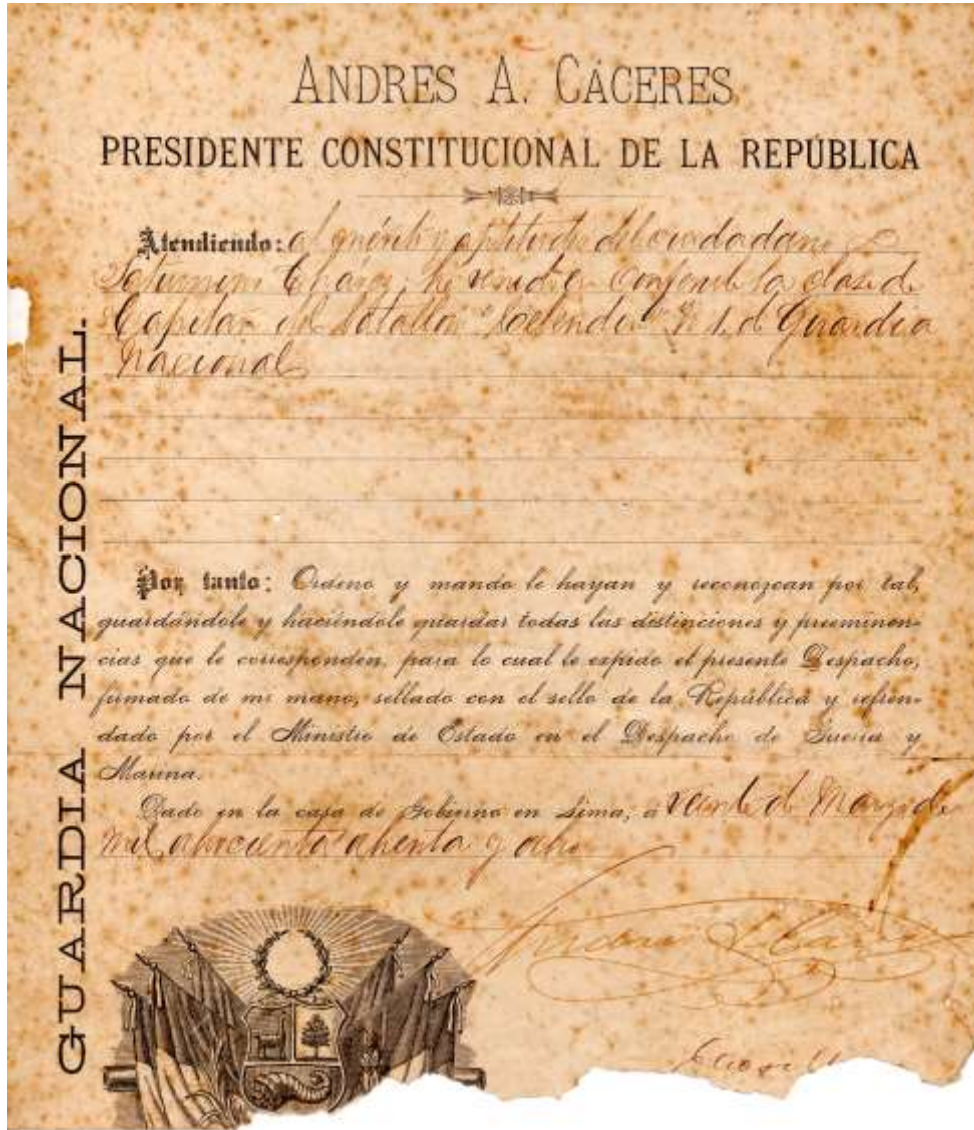 ANDRES A. CÁCERES
PRESIDENTE CONSTITUCIONAL DE LA REPÚBLICA
Atendiendo: al mérito y aptitudes del ciudadano
Chávez, he venido en conferirle la clase de
Capitan del Batallon "Celendin" N 1, d Guardia
Nacional
Por tanto: Ordeno y mando le hayan y reconozcan por tal,
guardándole y haciéndole guardar todas las distinciones y preeminen-
cias que le corresponden, para lo cual le expido el presente Despacho,
firmado de mi mano, sellado con el sello de la República y refren-
dado por el Ministro de Estado en el Despacho de Guerra y
Marina.
Dado en la casa de Gobierno en Lima, á veinte d Marzo de
mil ochocientos ochenta y ocho
GUARDIA NACIONAL.